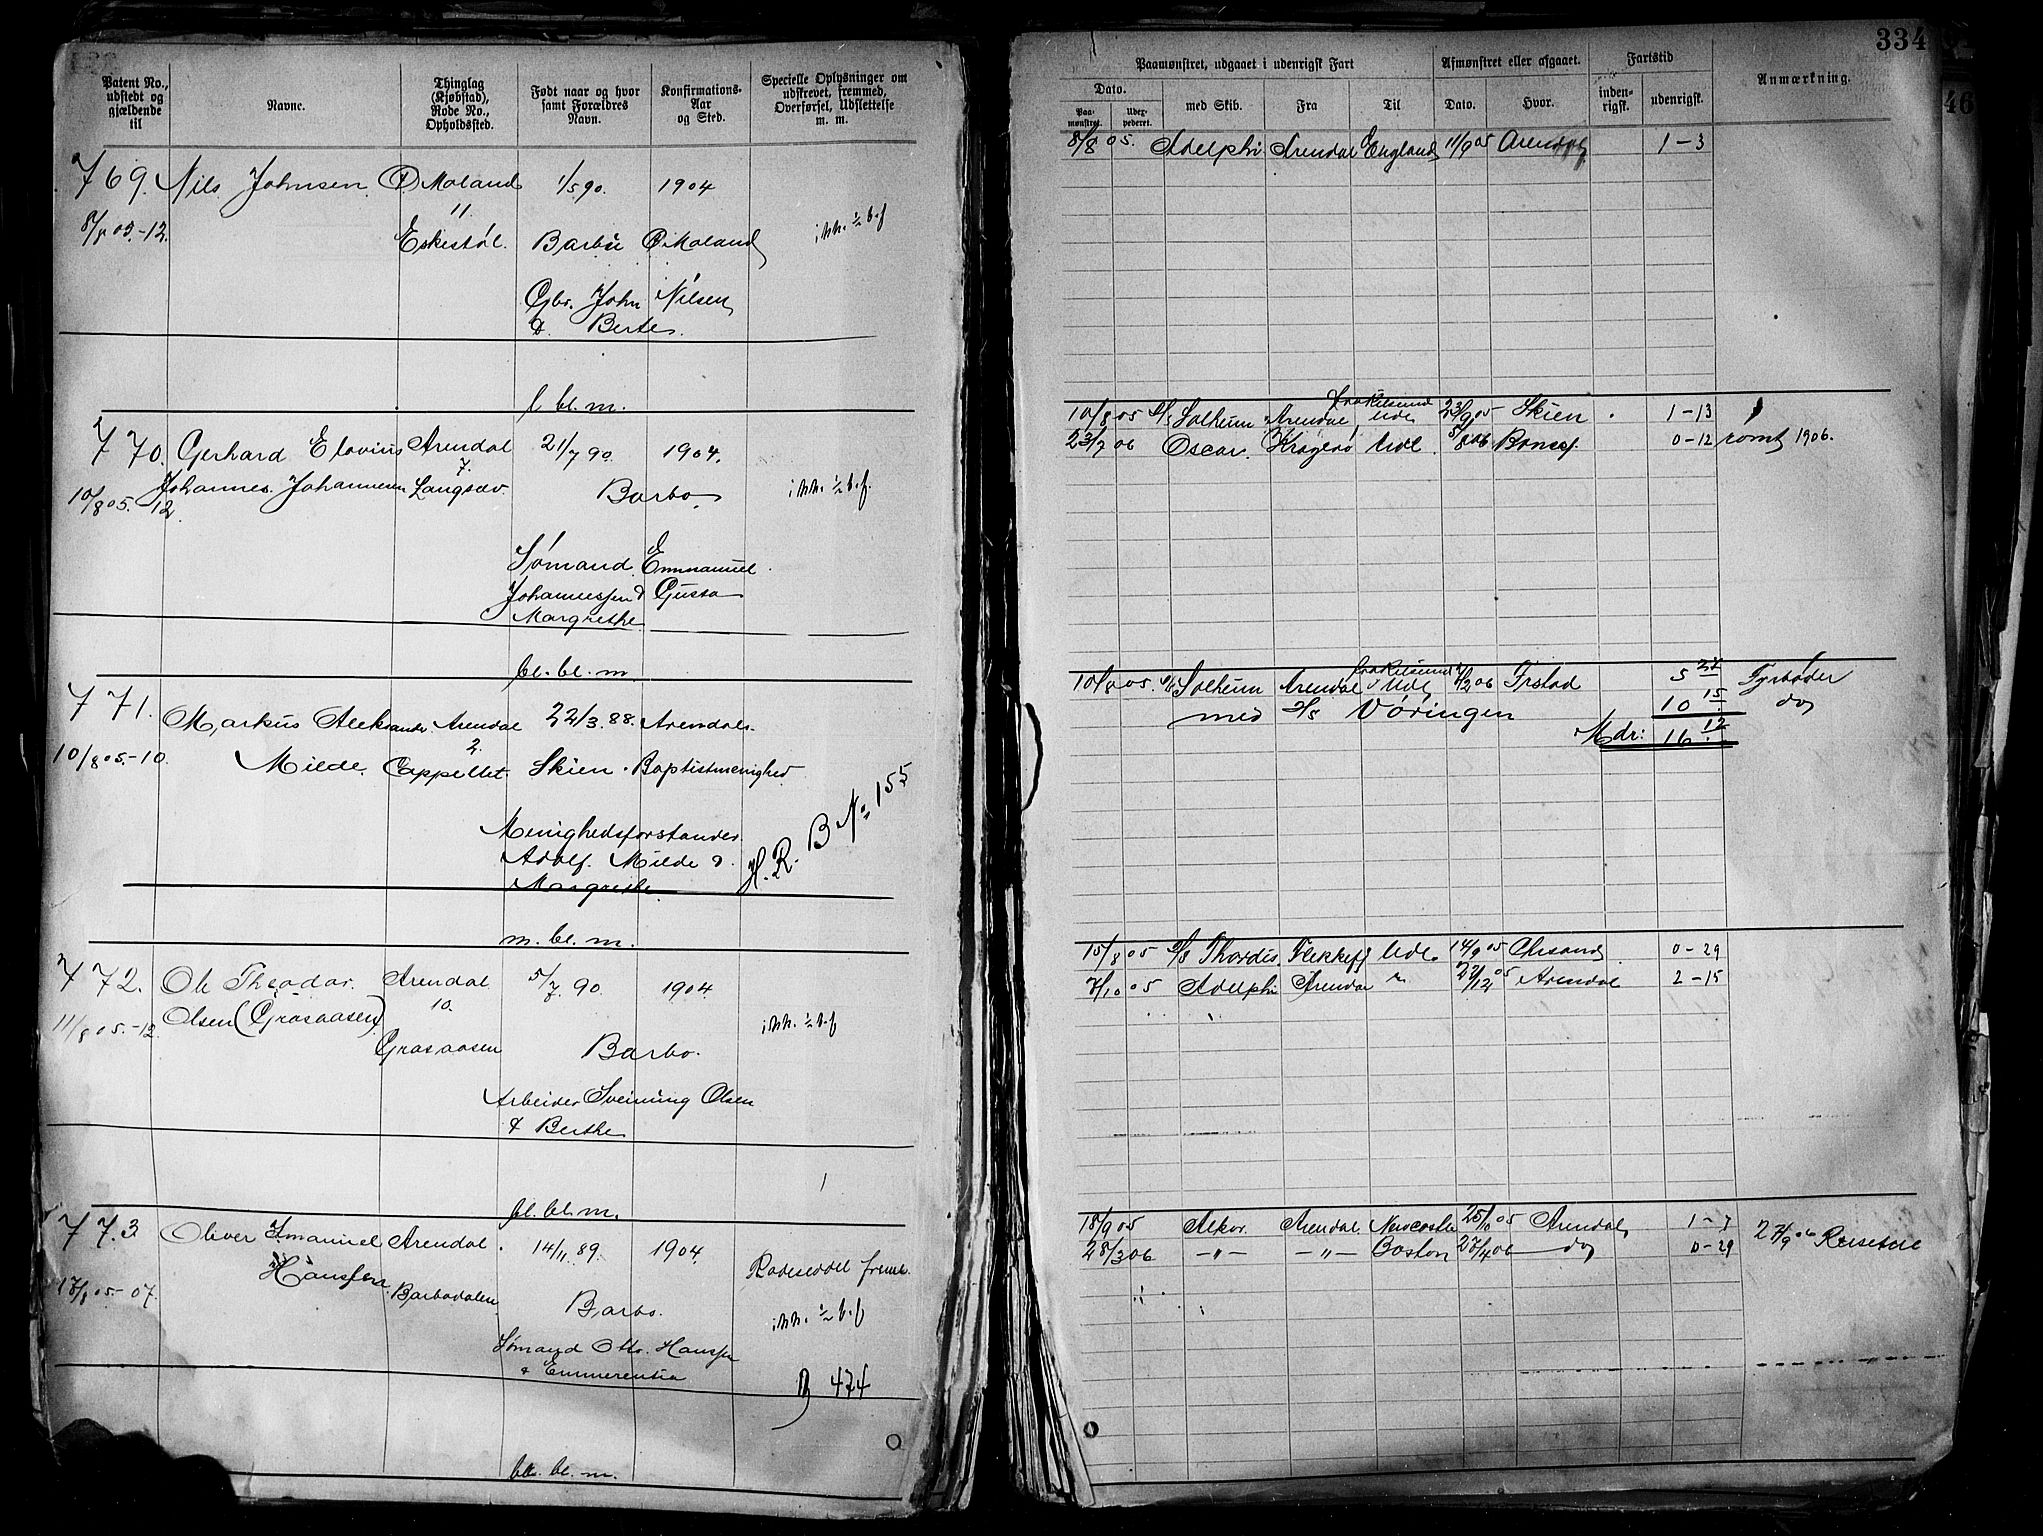 Patent No.,
udstedt og
gjældende
til
Navne.
Thinglag
(Kjøbstad),
Rode No.,
Opholdssted.
Født naar og hvor
samt Forældres
Navn.
Konfirmations-
Aar
og Sted.
Specielle Oplysninger om
udskrevet, fremmed,
Overførsel, Udslettelse
m. m.
769. Nils Johnsen Ø Moland 1/5 90. 1904
11
8/8 05.-12. Eskestøl. Barbu Ø Moland
Gbr. John Nilsen
& Berte.
bl. m.
770. Gerhard Elovius Arendal 21/7 90. 1904.
7.
Johannes Johannesen Langsæv.
10/8 05. 12. Barbo
Sømand Emmanuel
Johannessen & Gusta
Margrethe
bl. bl. m.
771. Markus Aleksander Arendal 22/3. 88. Arendals
2.
10/8 05.-10. Milde. Cappellet. Skien. Baptistmenighed
Menighedsforstander
Adolf Milde &
Margrethe
H. R. B No 155
m. bl. m.
772. Ole Theodor Arendal 5/7 90 1904.
10.
11/8 05.-12. Olsen (Græsaasen)
Græsaasen Barbo.
Arbeider Sveinung Olsen
& Berthe
bl. bl. m.
773 Oliver Emanuel Arendal 14/11 89. 1904.
Hanssen Barbodalen
17/8 05-07. Barbo.
Rodeseddel
Sømand Otto Hanssen
& Emmerentia
B 474
bl. bl. m.
334
46
Paamønstret, udgaaet i udenrigsk Fart
Afmønstret eller afgaaet.
Fartstid
Anmærkning.
Dato.
Paa-
mønstret.
Udex-
pederet.
med Skib.
Fra
Til
Dato.
Hvor.
inden-
rigsk.
udenrigsk.
8/8 05. Adelphi Arendal England 11/9 05 Arendal 1-3
10/8 05 S/S Solheim Arendal Ude 23/9 05 Skien 1-13
23/7 06 Oscar Kragerø Ude 5/8 06 0-12 rømt 1906.
10/8 05. S/S Solheim Arendal Ude 06 5 27 Fyrbøder
med S/S Vøringen 10 15 do
Mdr: 16 12
15/8 05 S/S Thordis Flekkefj Ude 14/9 05 Chrsand 0-29
7/10 05 Adelphi Arendal 05 Arendal 2-15
18/9 05 Alkor. Arendal Newcastle 25/10 05 Arendal 1-7
28/3 06 -"- -"- Boston 27/4 06 do 0-29